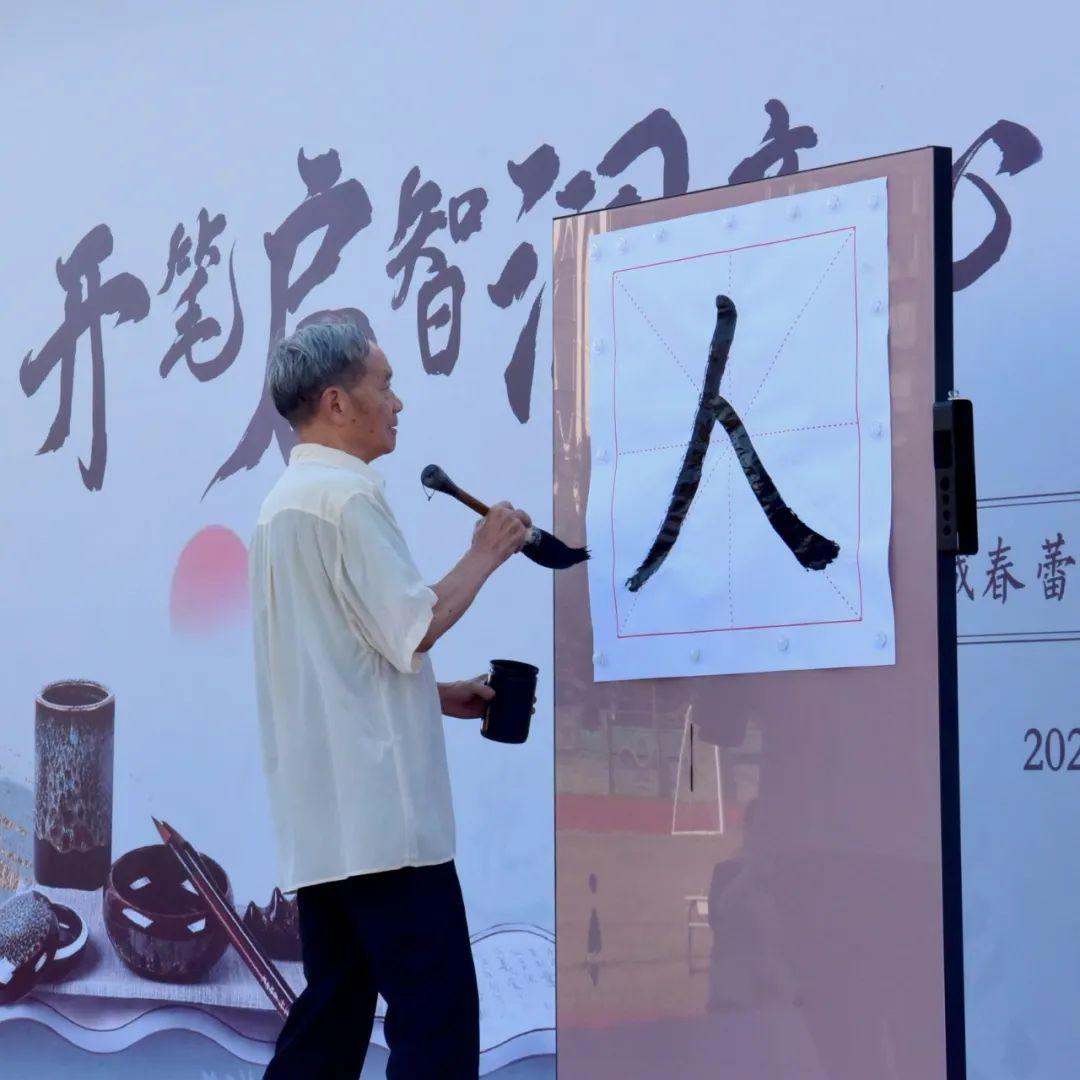 开笔启智润
人
春蕾
202